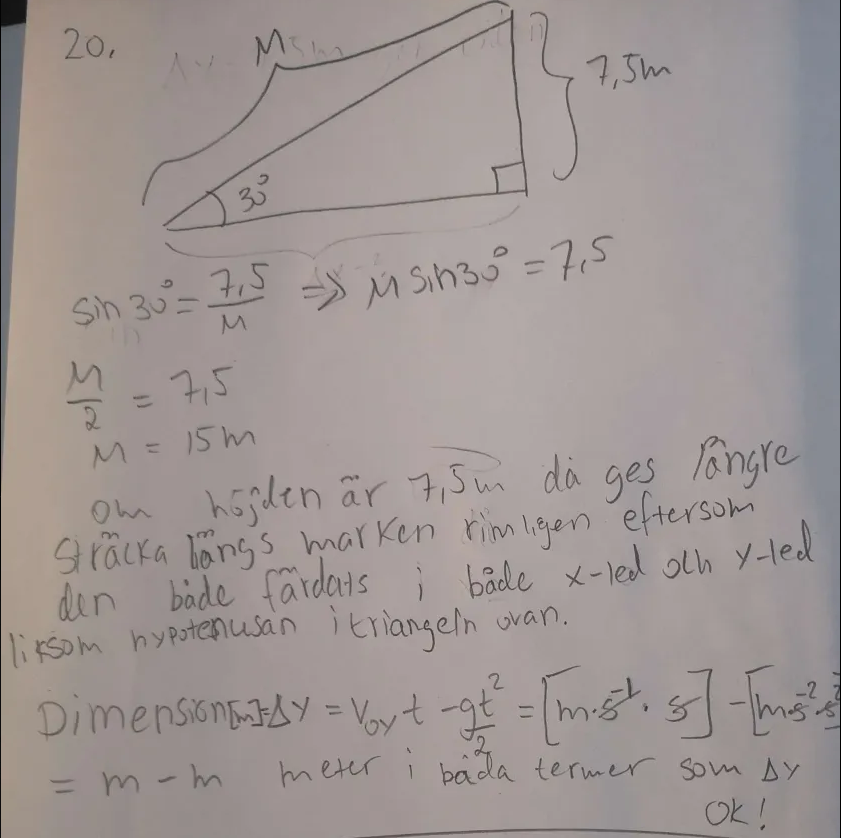 20.
M
7,5m
30°
sin 30° = 7,5/M => M sin 30° = 7,5
M/2 = 7,5
M = 15m
om höjden är 7,5m då ges längre
sträcka längs marken rimligen eftersom
den både färdats i både x-led och y-led
liksom hypotenusan i triangeln ovan.
Dimension[m]=Δy = V₀y t - gt²/2 = [m·s⁻¹·s] - [m·s⁻²·s²]
= m - m meter i båda termer som Δy
OK!